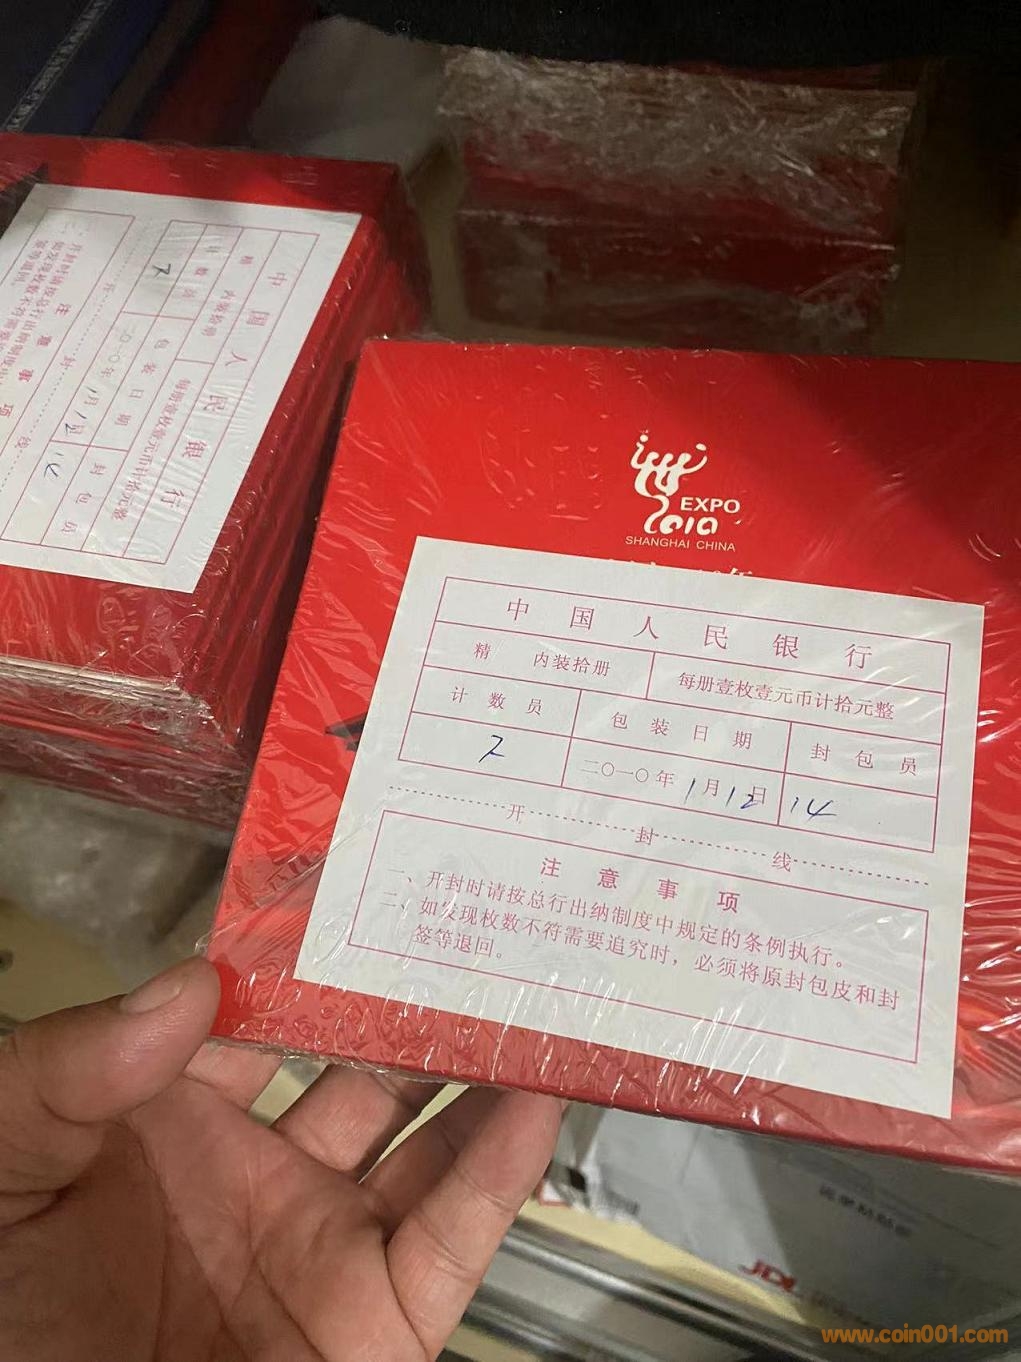 中国人民银行
精 内装拾册
每册壹枚壹元币计拾元整
计数员
包装日期
封包员
7
二〇一〇年1月12日
14
开封线
注意事项
一、开封时请按总行出纳制度中规定的条例执行。
二、如发现枚数不符需要追究时，必须将原封包皮和封
签等退回。
EXPO
2010
SHANGHAI CHINA
年
中国人民银行
精 内装拾册
每册壹枚壹元币计拾元整
计数员
包装日期
封包员
7
二〇一〇年1月12日
14
开封线
注意事项
一、开封时请按总行出纳制度
二、如发现枚数不符需要
签等退回。
JDL
www.coin001.com